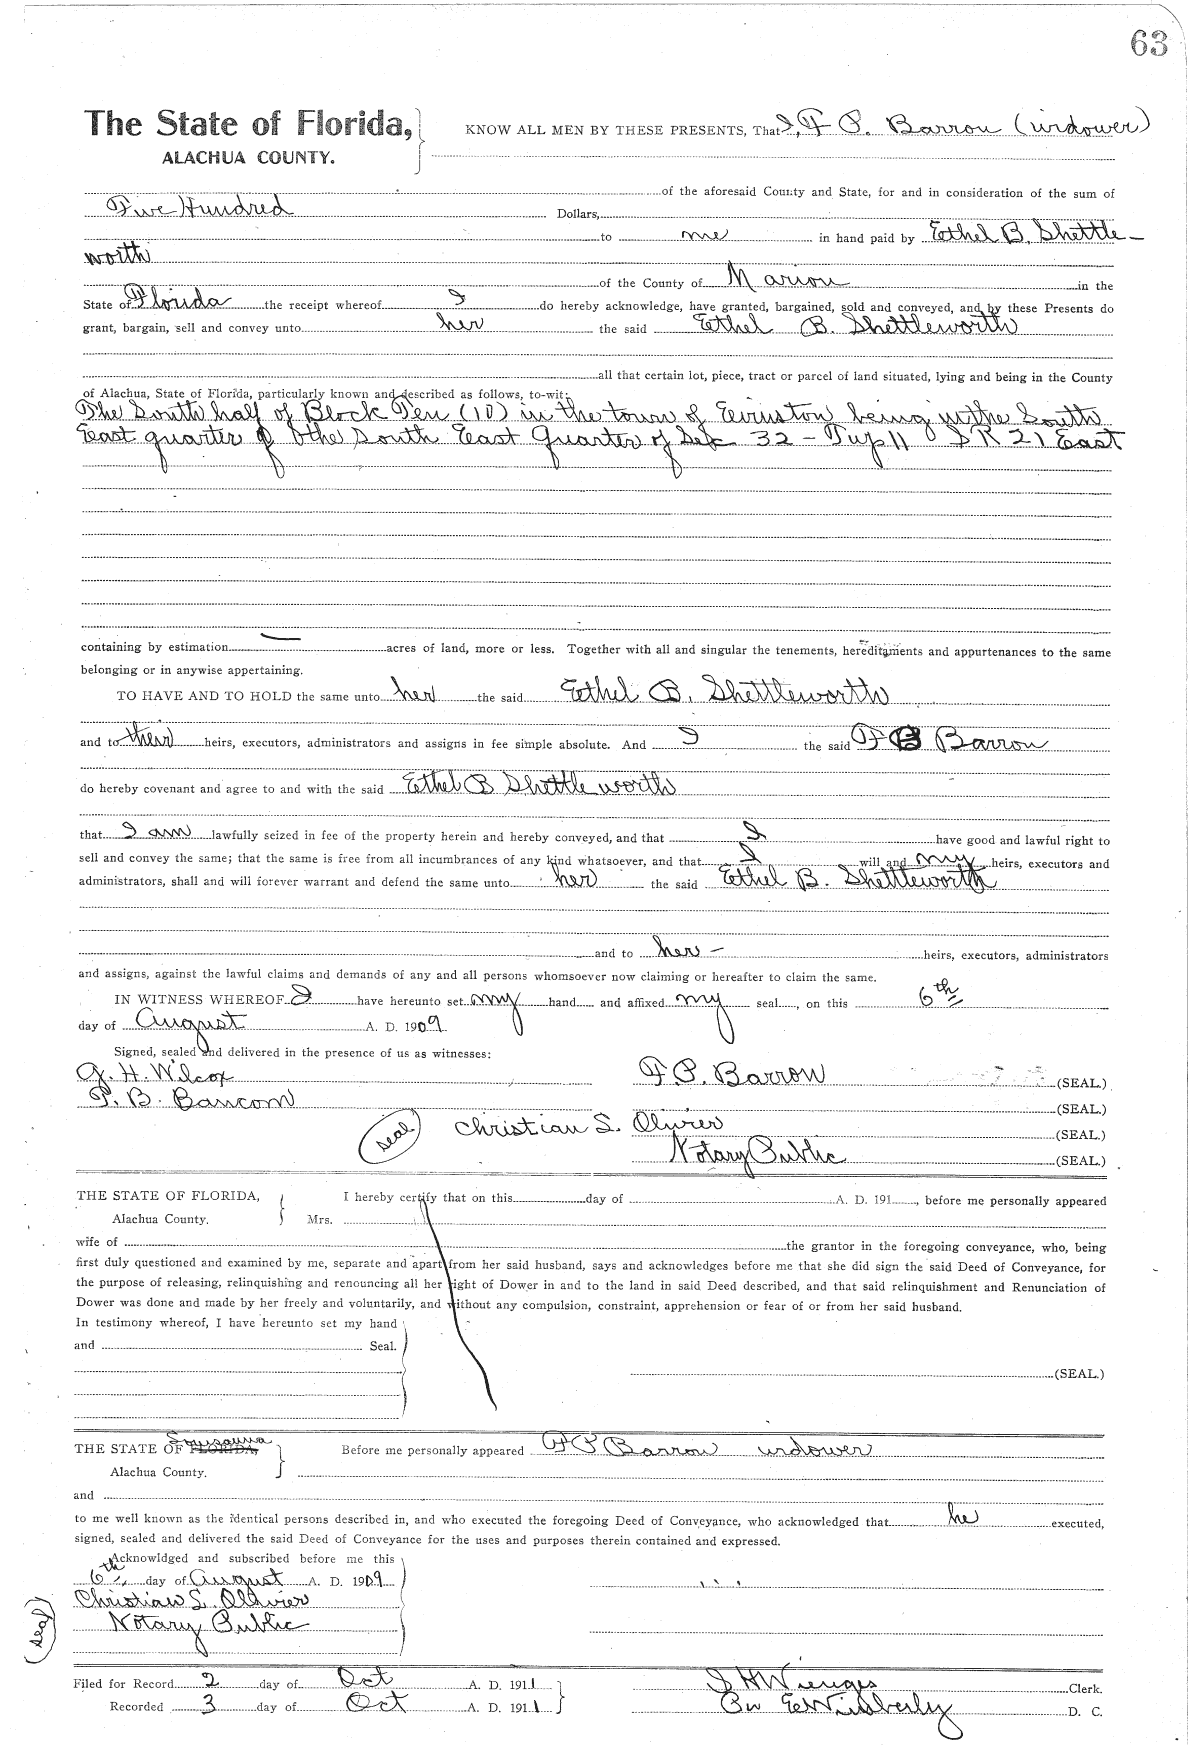 63
The State of Florida, KNOW ALL MEN BY THESE PRESENTS, That I, F P. Barron (widower)
ALACHUA COUNTY.
of the aforesaid County and State, for and in consideration of the sum of
Five Hundred Dollars,
to me in hand paid by Ethel B. Shettle-
worth
of the County of Marion in the
State of Florida the receipt whereof I do hereby acknowledge, have granted, bargained, sold and conveyed, and by these Presents do
grant, bargain, sell and convey unto her the said Ethel B. Shettleworth
all that certain lot, piece, tract or parcel of land situated, lying and being in the County
of Alachua, State of Florida, particularly known and described as follows, to-wit:
The South half of Block Ten (10) in the town of Evinston being in the South
East quarter of the South East Quarter of Sec 32 - Twp 11 S R 21 East
containing by estimation acres of land, more or less. Together with all and singular the tenements, hereditaments and appurtenances to the same
belonging or in anywise appertaining.
TO HAVE AND TO HOLD the same unto her the said Ethel B. Shettleworth
and to their heirs, executors, administrators and assigns in fee simple absolute. And I the said F Barron
do hereby covenant and agree to and with the said Ethel B Shettleworth
that I am lawfully seized in fee of the property herein and hereby conveyed, and that I have good and lawful right to
sell and convey the same; that the same is free from all incumbrances of any kind whatsoever, and that I will and my heirs, executors and
administrators, shall and will forever warrant and defend the same unto her the said Ethel B. Shettleworth
and to her - heirs, executors, administrators
and assigns, against the lawful claims and demands of any and all persons whomsoever now claiming or hereafter to claim the same.
IN WITNESS WHEREOF I have hereunto set my hand and affixed my seal, on this 6th
day of August A. D. 1909
Signed, sealed and delivered in the presence of us as witnesses:
G. H. Wilcox F. P. Barron (SEAL.)
P. B. Bancom (SEAL.)
(seal) Christian S. Olivier (SEAL.)
Notary Public (SEAL.)
THE STATE OF FLORIDA, I hereby certify that on this day of A. D. 191 , before me personally appeared
Alachua County. Mrs.
wife of the grantor in the foregoing conveyance, who, being
first duly questioned and examined by me, separate and apart from her said husband, says and acknowledges before me that she did sign the said Deed of Conveyance, for
the purpose of releasing, relinquishing and renouncing all her right of Dower in and to the land in said Deed described, and that said relinquishment and Renunciation of
Dower was done and made by her freely and voluntarily, and without any compulsion, constraint, apprehension or fear of or from her said husband.
In testimony whereof, I have hereunto set my hand
and Seal.
(SEAL.)
THE STATE OF FLORIDA, Before me personally appeared F P Barron widower
Alachua County.
and
to me well known as the identical persons described in, and who executed the foregoing Deed of Conveyance, who acknowledged that he executed,
signed, sealed and delivered the said Deed of Conveyance for the uses and purposes therein contained and expressed.
Acknowldged and subscribed before me this
6th day of August A. D. 1909
Christian S. Ollivier
Notary Public
(seal)
Filed for Record 2 day of Oct A. D. 1911 S H Wienges Clerk.
Recorded 3 day of Oct A. D. 1911 By E Wimberly D. C.